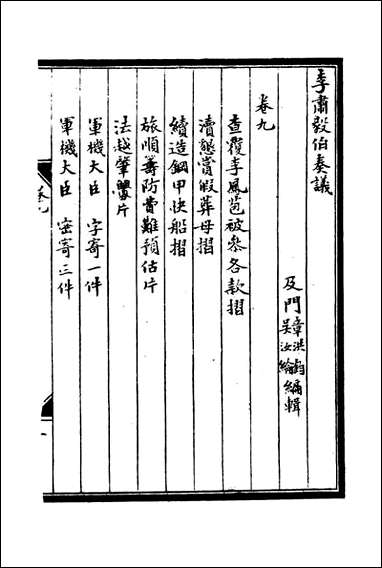 李肅毅伯奏議
及門章洪鈞吳汝綸編輯
卷九
查覆李鳳苞被參各款摺
瀆懇賞假葬母摺
續造鋼甲快船摺
旅順籌防費難預估片
法越肇釁片
軍機大臣 字寄一件
軍機大臣 密寄三件
卷九
一